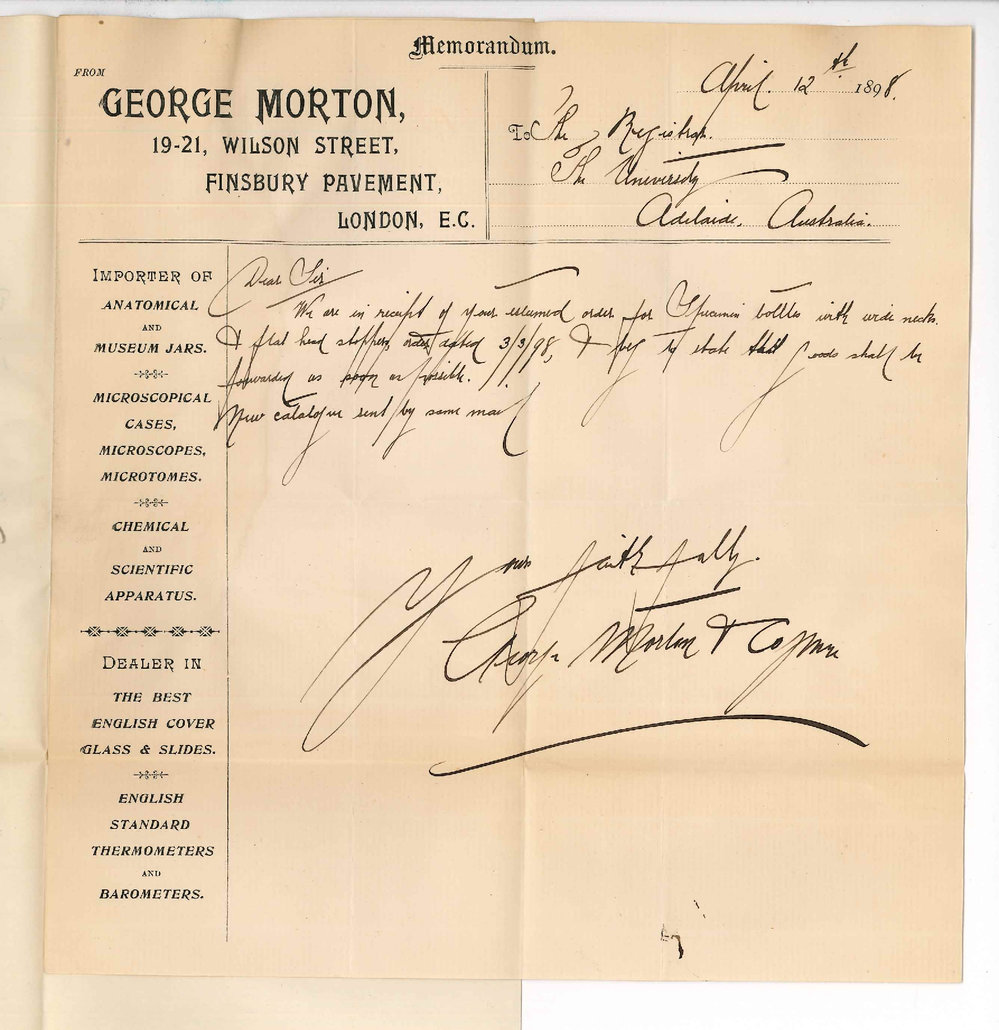 Memorandum.
FROM
GEORGE MORTON,
19-21, WILSON STREET,
FINSBURY PAVEMENT,
LONDON, E.C.
April. 12th 1898.
To The Registrar.
The University
Adelaide, Australia.
IMPORTER OF
ANATOMICAL
AND
MUSEUM JARS.
MICROSCOPICAL
CASES,
MICROSCOPES,
MICROTOMES.
CHEMICAL
AND
SCIENTIFIC
APPARATUS.
DEALER IN
THE BEST
ENGLISH COVER
GLASS & SLIDES.
ENGLISH
STANDARD
THERMOMETERS
AND
BAROMETERS.
Dear Sir
We are in receipt of your esteemed order for Specimen bottles with wide necks.
& flat head stoppers, order dated 3/3/98, & beg to state that goods shall be
forwarded as soon as possible.
New catalogue sent by same mail
Yours faithfully.
George Morton & Company